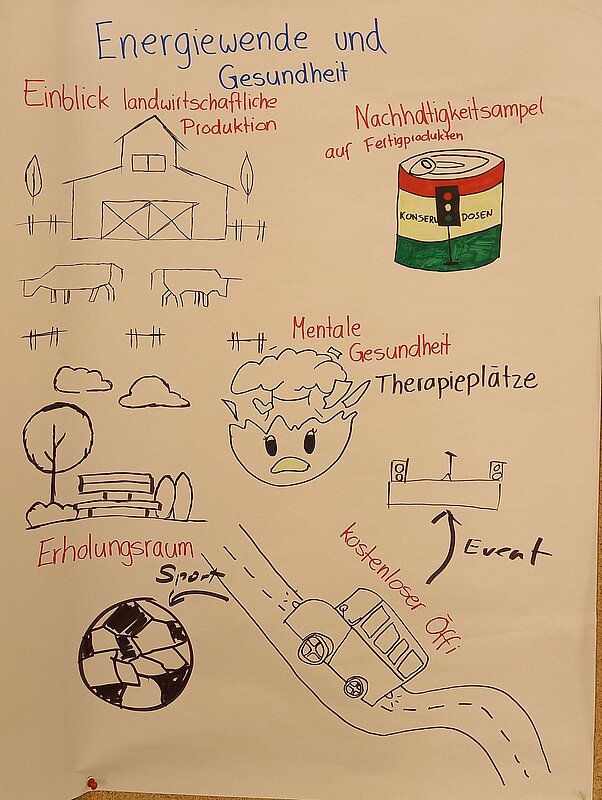 Energiewende und
Gesundheit
Einblick landwirtschaftliche
Produktion
Nachhaltigkeitsampel
auf Fertigprodukten
KONSERV DOSEN
Mentale
Gesundheit
Therapieplätze
Erholungsraum
Sport
kostenloser Öffi
Event